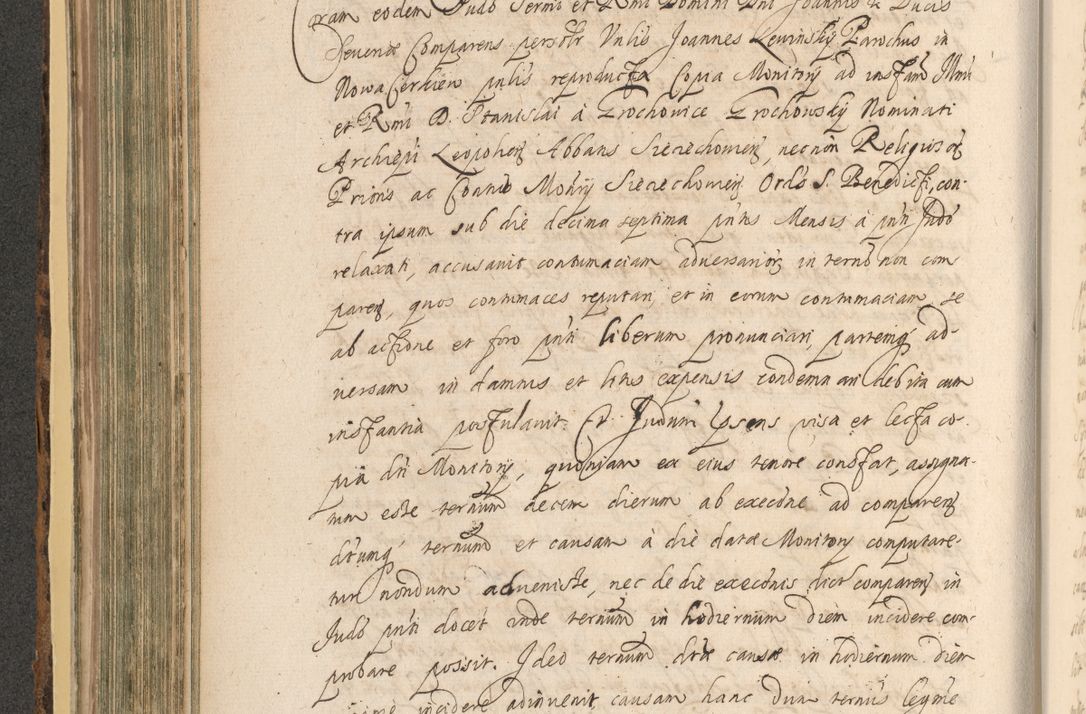 ram eodem Iudo Sermi et Rmi Domini Dni Joannis K. Ducis
Severiæ Comparens persolr Vnlis Joannes Lewinsky Parochus in
Nowa Cerkiew pnlis reproducta Copia Monitorij ad instam Illmi
et Rmi D. Stanislai à Grochowice Grochowsky Nominati
Archiepi Leopolien Abbatis Sieciechowien, necnon Religiosor
Prioris ac Contus Mohrij Sieciechowien Ordis S. Benedicti, con-
tra ipsum sub die decima septima pntis Mensis à pnti Judo
relaxati, accusavit contumaciam adversarior in terno non com
paren, quos contumaces reputari, et in eorum contumaciam se
ab actione et foro pnti liberum pronunciari, partemq ad-
versam in damnis et litis expensis condemnari debita cum
instantia postulavit. Et Judium Ipsens visa et lecta co-
pia dti Monitorij, quoniam ex eius tenore constat, assigna-
tum esse ternum decem dierum ab execone ad comparen
dtumq ternum et causam à die datæ Monitorij computare-
tur nondum advenisse, nec de die execonis dict comparen in
Judo pnti docet inde ternum in hodiernum diem incidere com-
probare possit. Ideo ternum dtæ causæ in hodiernum diem
incidere adinvenit, causam hanc dum ternus legme